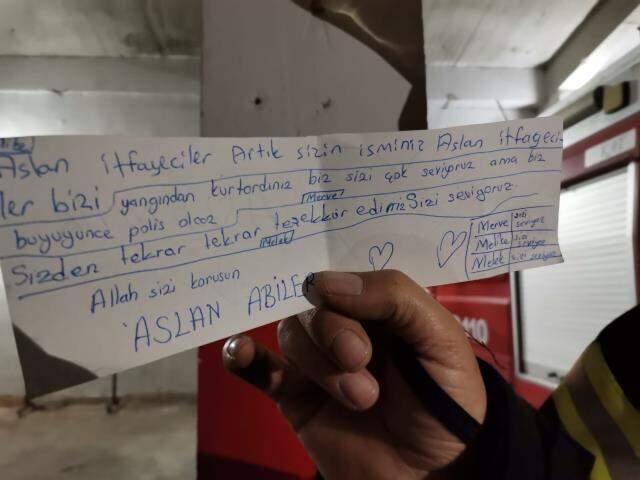 Aslan itfayeciler Artık sizin isminiz Aslan itfayeci-
ler bizi yangından kurtardınız biz sizi çok seviyoruz ama biz
büyüyünce polis olcaz Merve
Sizden tekrar tekrar teşekkür edimiz Sizi seviyoruz.
Melek
Allah sizi korusun
ASLAN ABİLER
Merve sizi seviyoruz
Melike sizi seviyoruz
Melek sizi seviyoruz
110